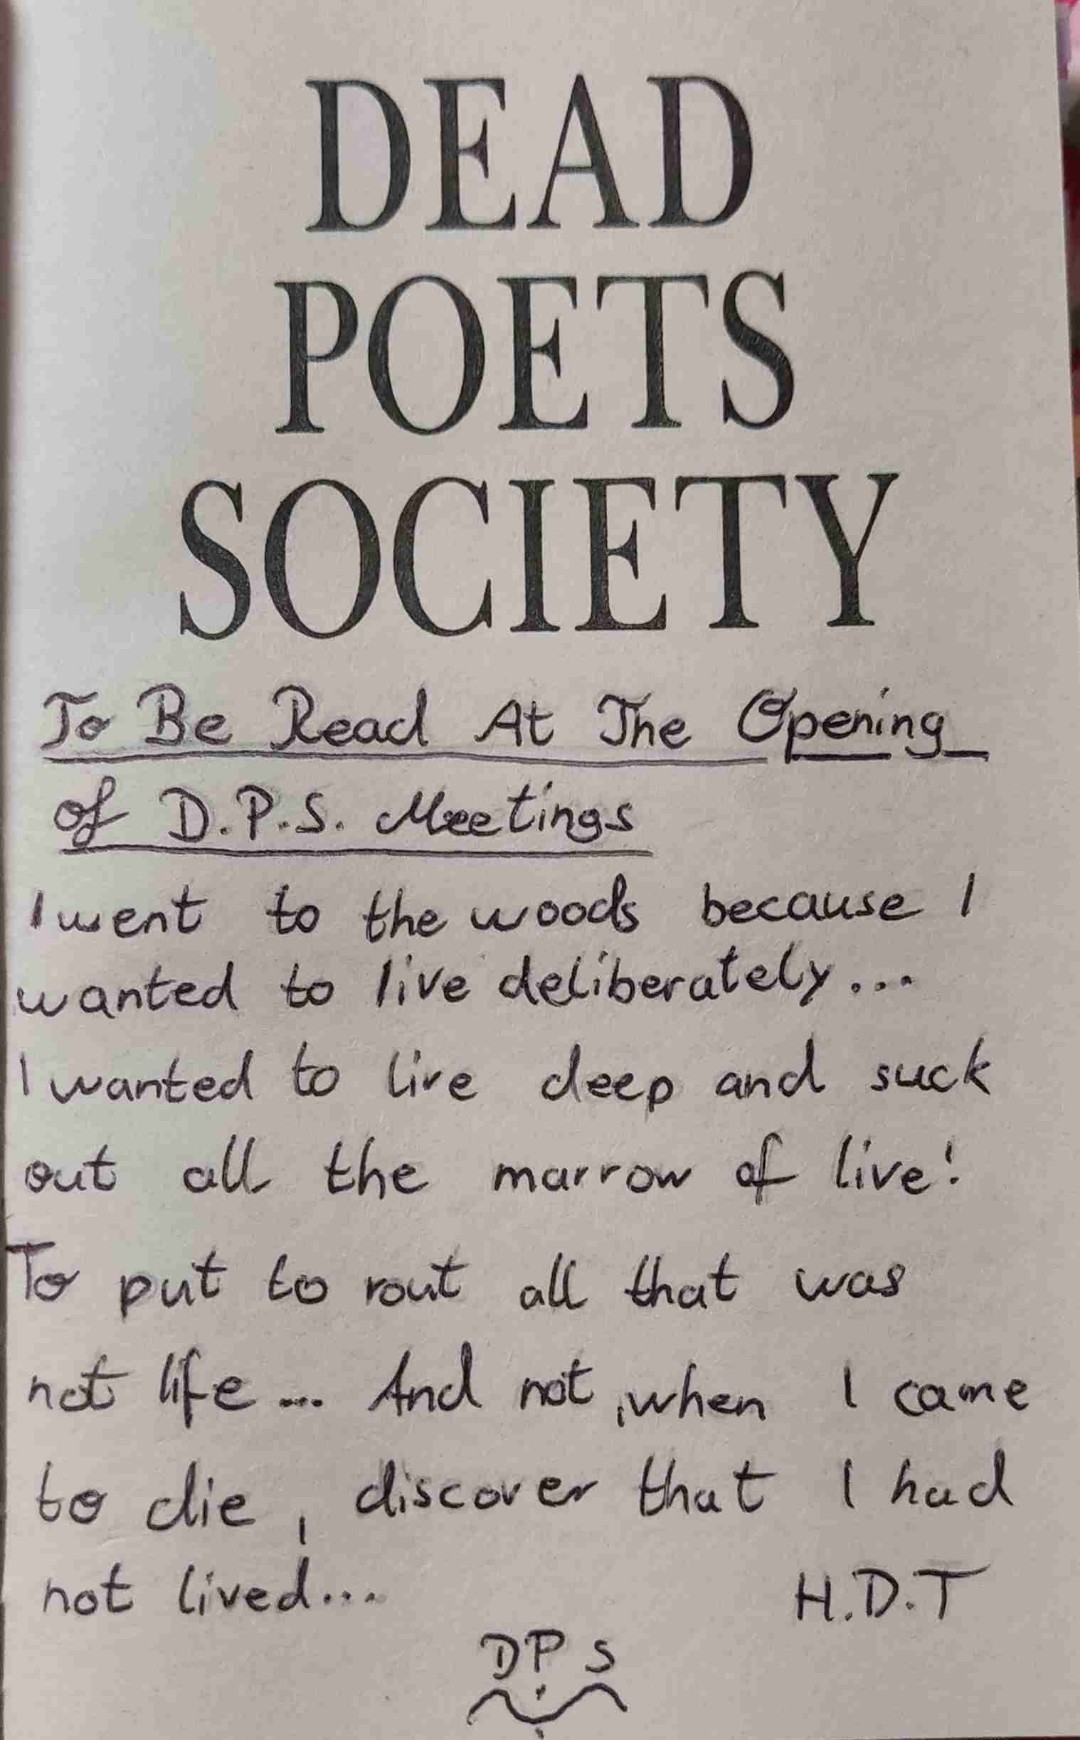 DEAD
POETS
SOCIETY
To Be Read At The Opening
of D.P.S. Meetings
I went to the woods because I
wanted to live deliberately...
I wanted to live deep and suck
out all the marrow of live!
To put to rout all that was
not life... And not, when I came
to die, discover that I had
not lived...
H.D.T
DPS